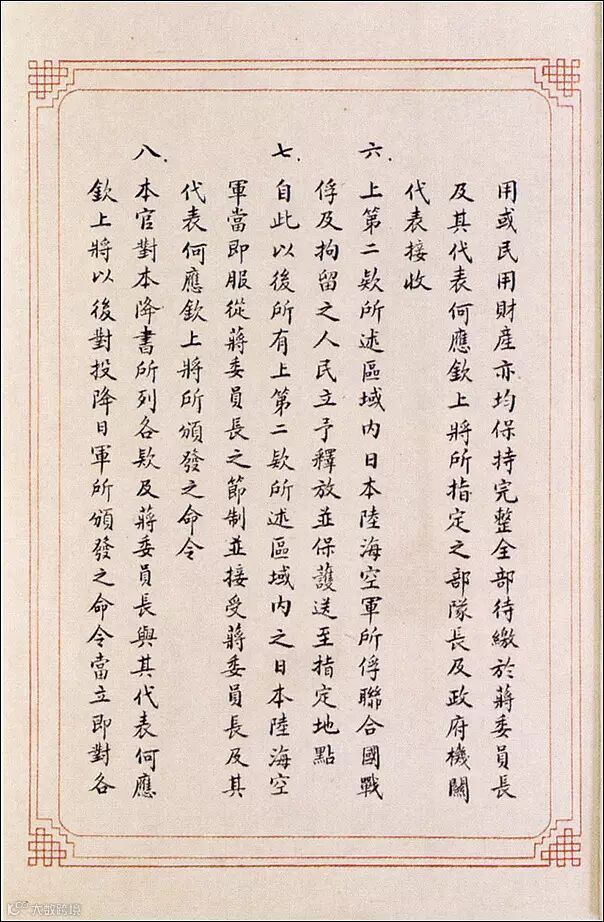 用或民用財產亦均保持完整全部待繳於蔣委員長
及其代表何應欽上將所指定之部隊長及政府機關
代表接收
六.上第二款所述區域內日本陸海空軍所俘聯合國戰
俘及拘留之人民立予釋放並保護送至指定地點
七.自此以後所有上第二款所述區域內之日本陸海空
軍當即服從蔣委員長之節制並接受蔣委員長及其
代表何應欽上將所頒發之命令
八.本官對本降書所列各款及蔣委員長與其代表何應
欽上將以後對投降日軍所頒發之命令當立即對各
大數跨境